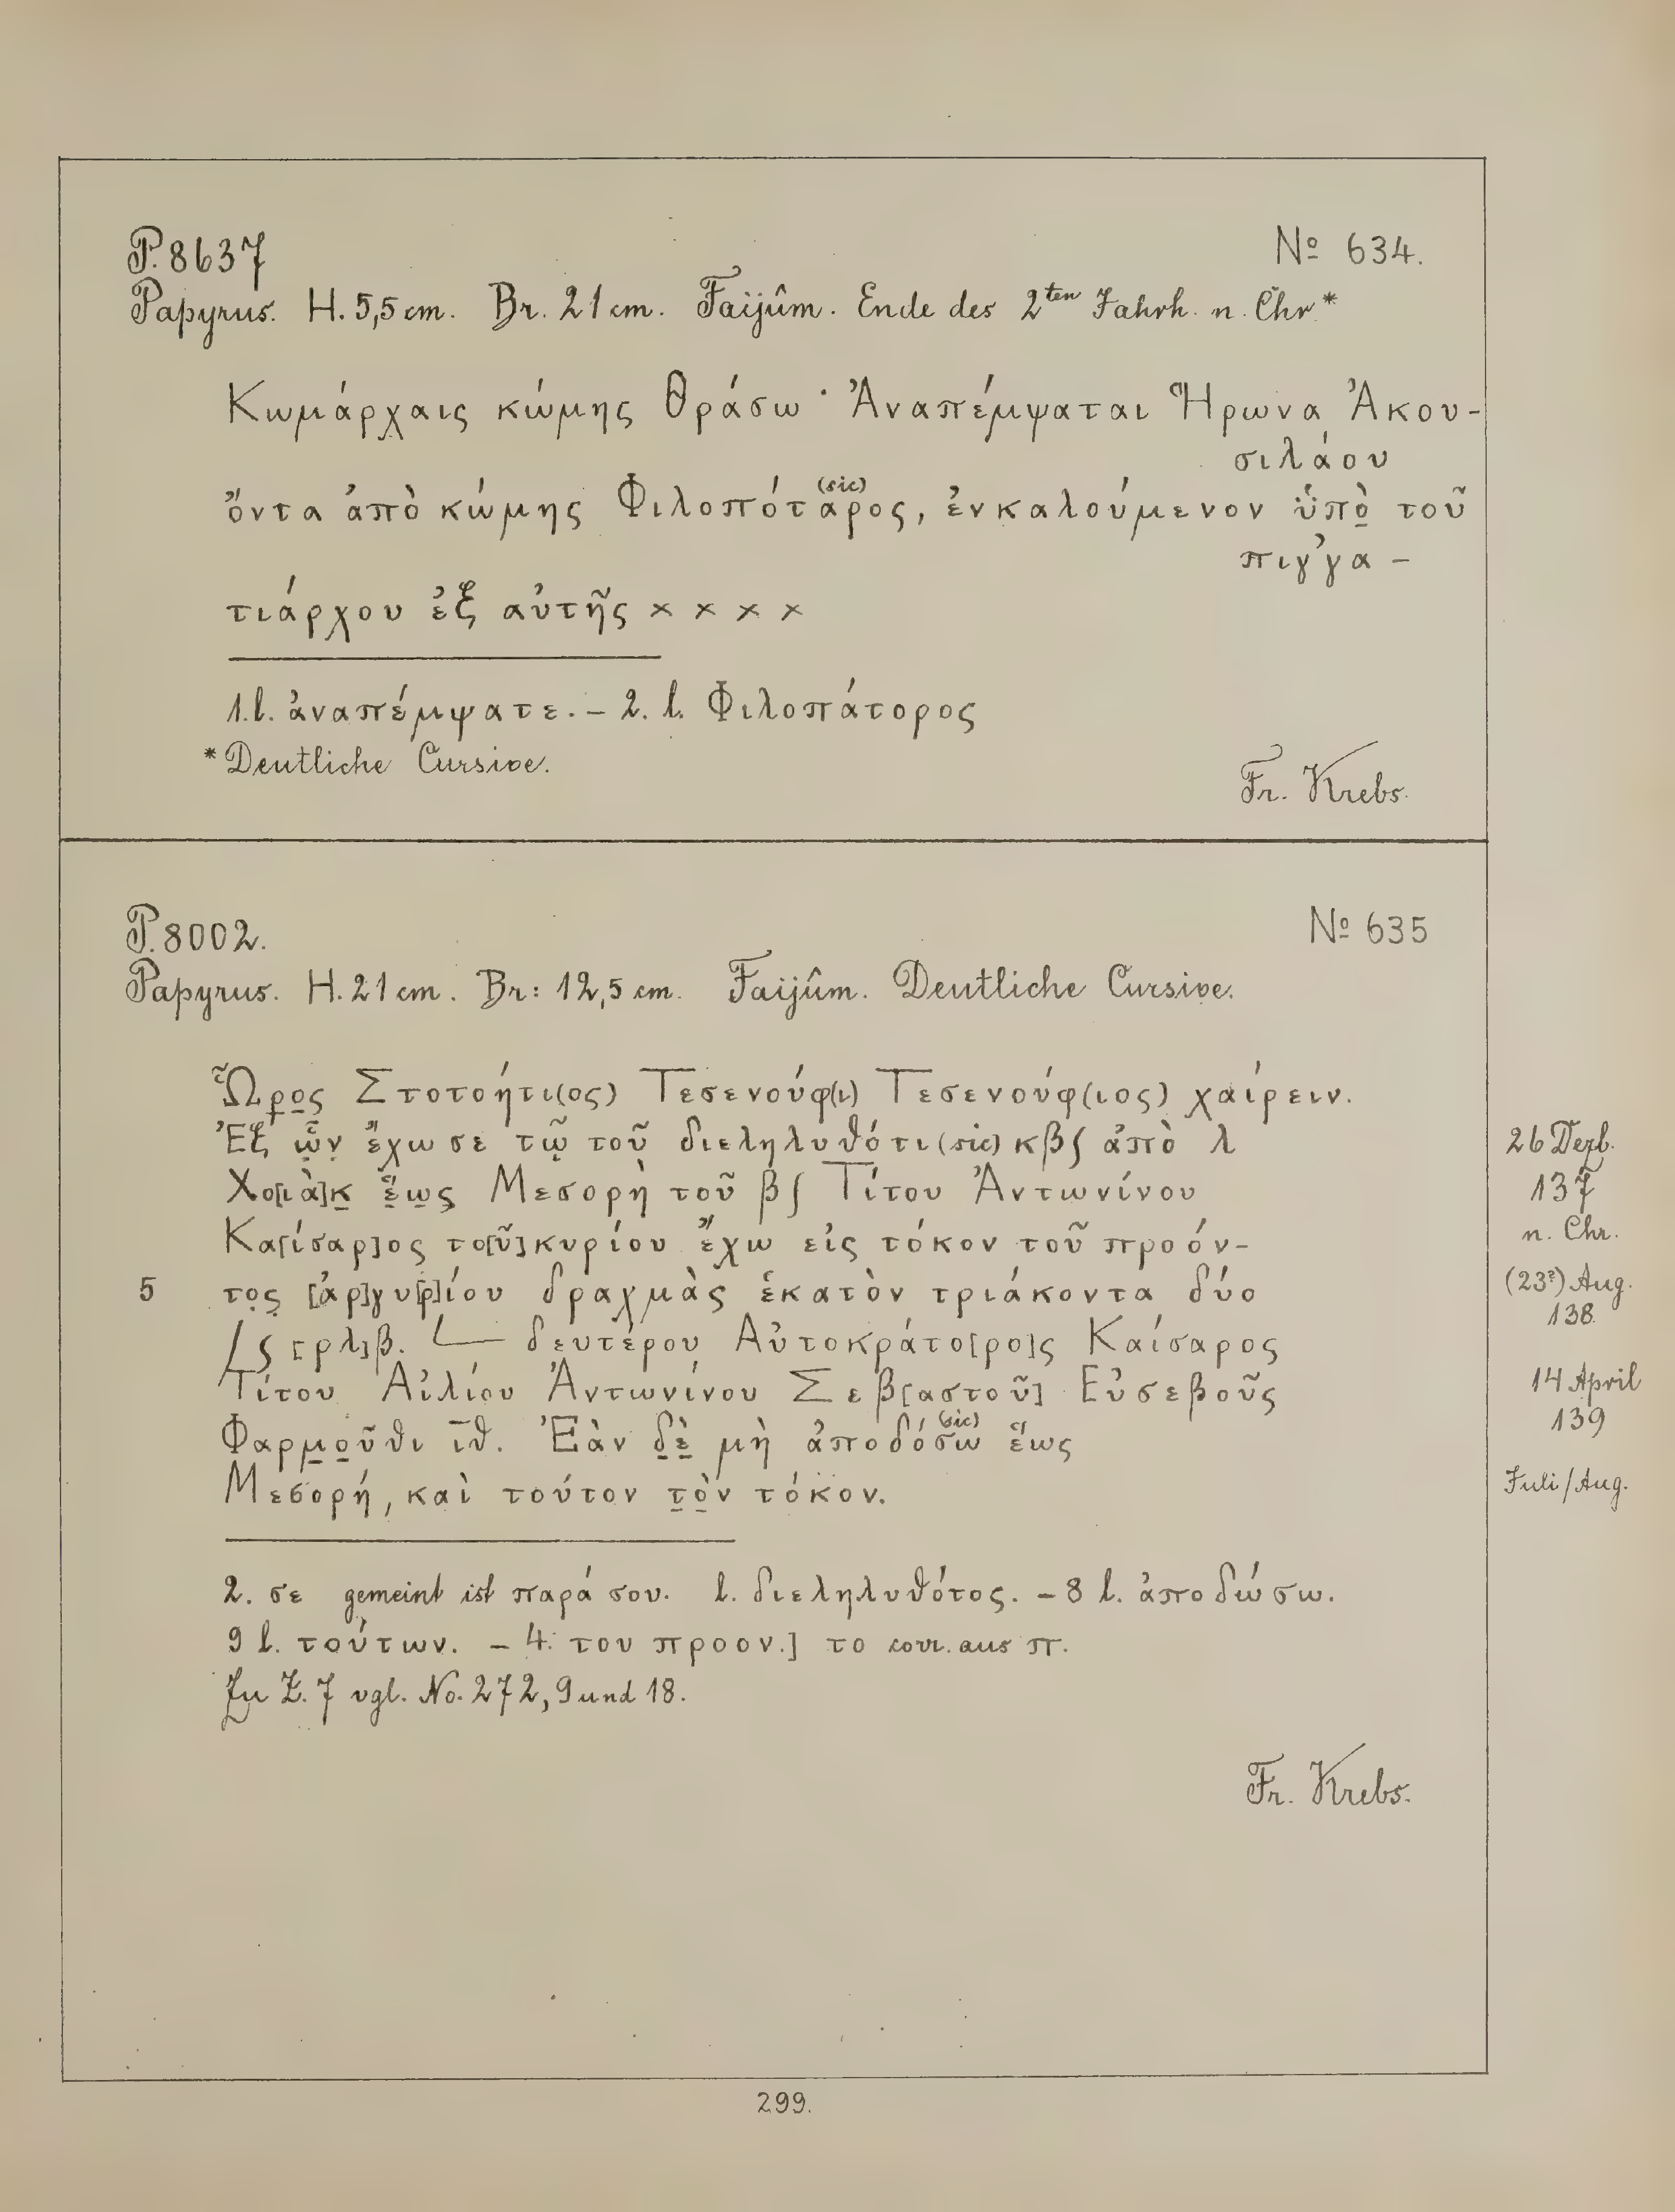 P. 8637
No 634.
Papyrus. H. 5,5 cm. Br. 21 cm. Faijûm. Ende des 2ten Jahrh. n. Chr.*
Κωμάρχαις κώμης Θράσω · Ἀναπέμψαται Ἥρωνα Ἀκου-
σιλάου
ὄντα ἀπὸ κώμης Φιλοπόταρος, (sic) ἐνκαλούμενον ὑ̈πὸ̣ τοῦ
πιγ’γα -
τιάρχου ἐξ αὐτῆς × × × ×
1. l. ἀναπέμψατε. - 2. l. Φιλοπάτορος
* Deutliche Cursive.
Fr. Krebs.
P. 8002.
No 635
Papyrus. H. 21 cm. Br: 12,5 cm. Faijûm. Deutliche Cursive.
Ὧρ̣ο̣ς Στοτοήτι(ος) Τεσενούφ(ι) Τεσενούφ(ιος) χαίρειν.
Ἐξ ὧ̣ν̣ ἔχω σε τῷ τοῦ διεληλυθότι (sic) κβ∫ ἀπὸ λ
26 Dezb.
Χο[ιὰ]κ̣ ἕ̣ω̣ς Μεσορὴ τοῦ β∫ Τίτου Ἀντωνίνου
137
n. Chr.
Κα[ίσαρ]ος το[ῦ] κυρίου ἔχω εἰς τόκον τοῦ προόν-
5 το̣ς̣ [ἀρ]γυ[ρ]ίου δραχμὰς ἑκατὸν τριάκοντα δύο
(23?) Aug.
138.
/ʃ [ρλ]β. L δευτέρου Αὐτοκράτο[ρο]ς Καίσαρος
Τίτου Αἰλίου Ἀντωνίνου Σεβ[αστοῦ] Εὐσεβοῦς
14 April
139
Φαρμ̣ο̣ῦθι ῑθ. Ἐὰν δ̣ὲ̣ μὴ ἀποδόσω (sic) ἕως
Μεσορή, καὶ τούτον τ̣ὸ̣ν τόκον.
Juli/Aug.
2. σε gemeint ist παρά σου. l. διεληλυθότος. - 8 l. ἀποδώσω.
9 l. τούτων. - 4. του προον.] το corr. aus π.
Zu Z. 7 vgl. No. 272, 9 und 18.
Fr. Krebs.
299.